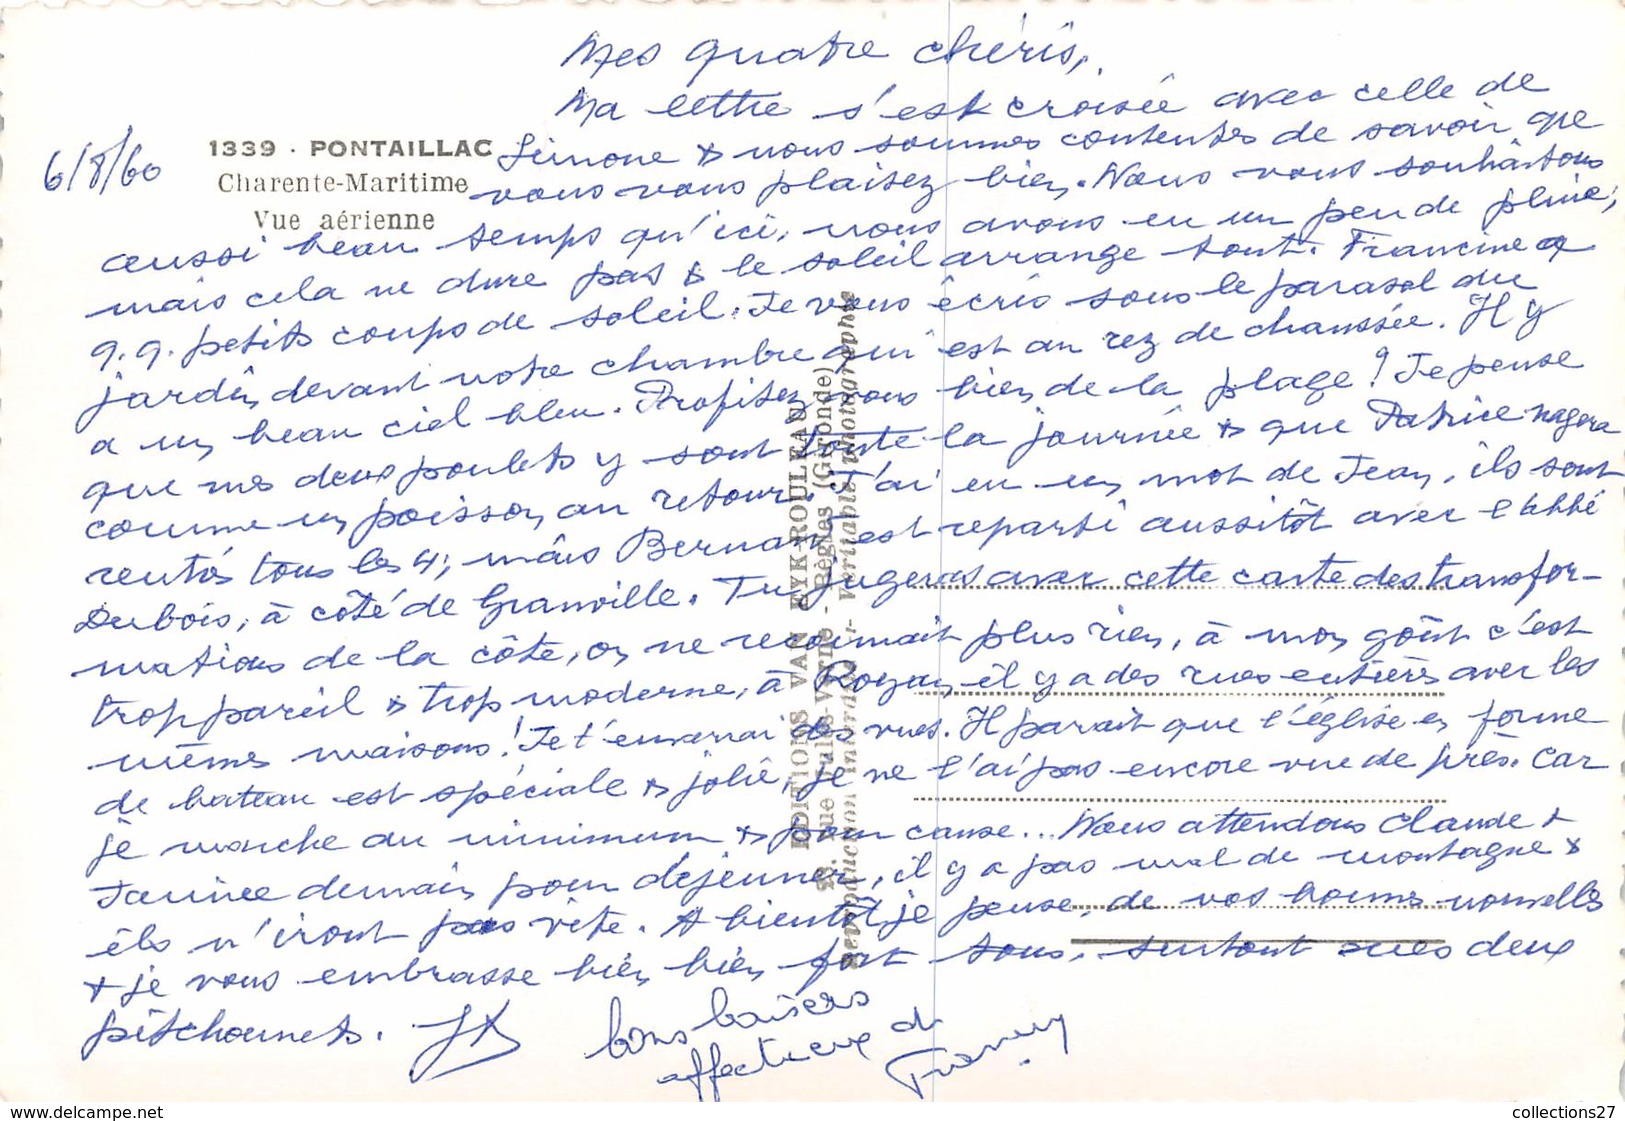 Mes quatre chéris,
Ma lettre s'est croisée avec celle de
6/8/60
1339 - PONTAILLAC
Charente-Maritime
Vue aérienne
Simone & nous sommes contentes de savoir que
vous vous plaisez bien. Nous vous souhaitons
aussi beau temps qu'ici, nous avons eu un peu de pluie,
mais cela ne dure pas & le soleil arrange tout. Francine a
q.q. petits coups de soleil. Je vous écris sous le parasol du
jardin devant notre chambre qui est au rez de chaussée. Il y
a un beau ciel bleu. Profitez vous bien de la plage? Je pense
que mes deux poulets y sont toute la journée & que Patrice nagera
comme un poisson au retour. J'ai eu un mot de Jean, ils sont
rentrés tous les 4; mais Bernard est reparti aussitôt avec l'abbé
Dubois, à côté de Granville. Tu jugeras avec cette carte des transfor-
mations de la côte, on ne reconnait plus rien, à mon goût c'est
trop pareil & trop moderne, à Royan, il y a des rues entières avec les
mêmes maisons! Je t'enverrai des vues. Il parait que l'église en forme
de bateau est spéciale & jolie, je ne l'ai pas encore vue de près. Car
je marche au minimum & pour cause... Nous attendons Claude &
Janine demain pour déjeuner, il y a pas mal de montagne &
ils n'iront pas vite. A bientôt je pense, de vos bonnes nouvelles
& je vous embrasse bien bien fort tous, surtout mes deux
pitchounets.
bons baisers
affectueux de
EDITIONS VAN EYK-ROULEAU
28, Rue Jules-Verne - Bègles (Gironde)
Reproduction interdite - Véritable photographie
www.delcampe.net
collections27